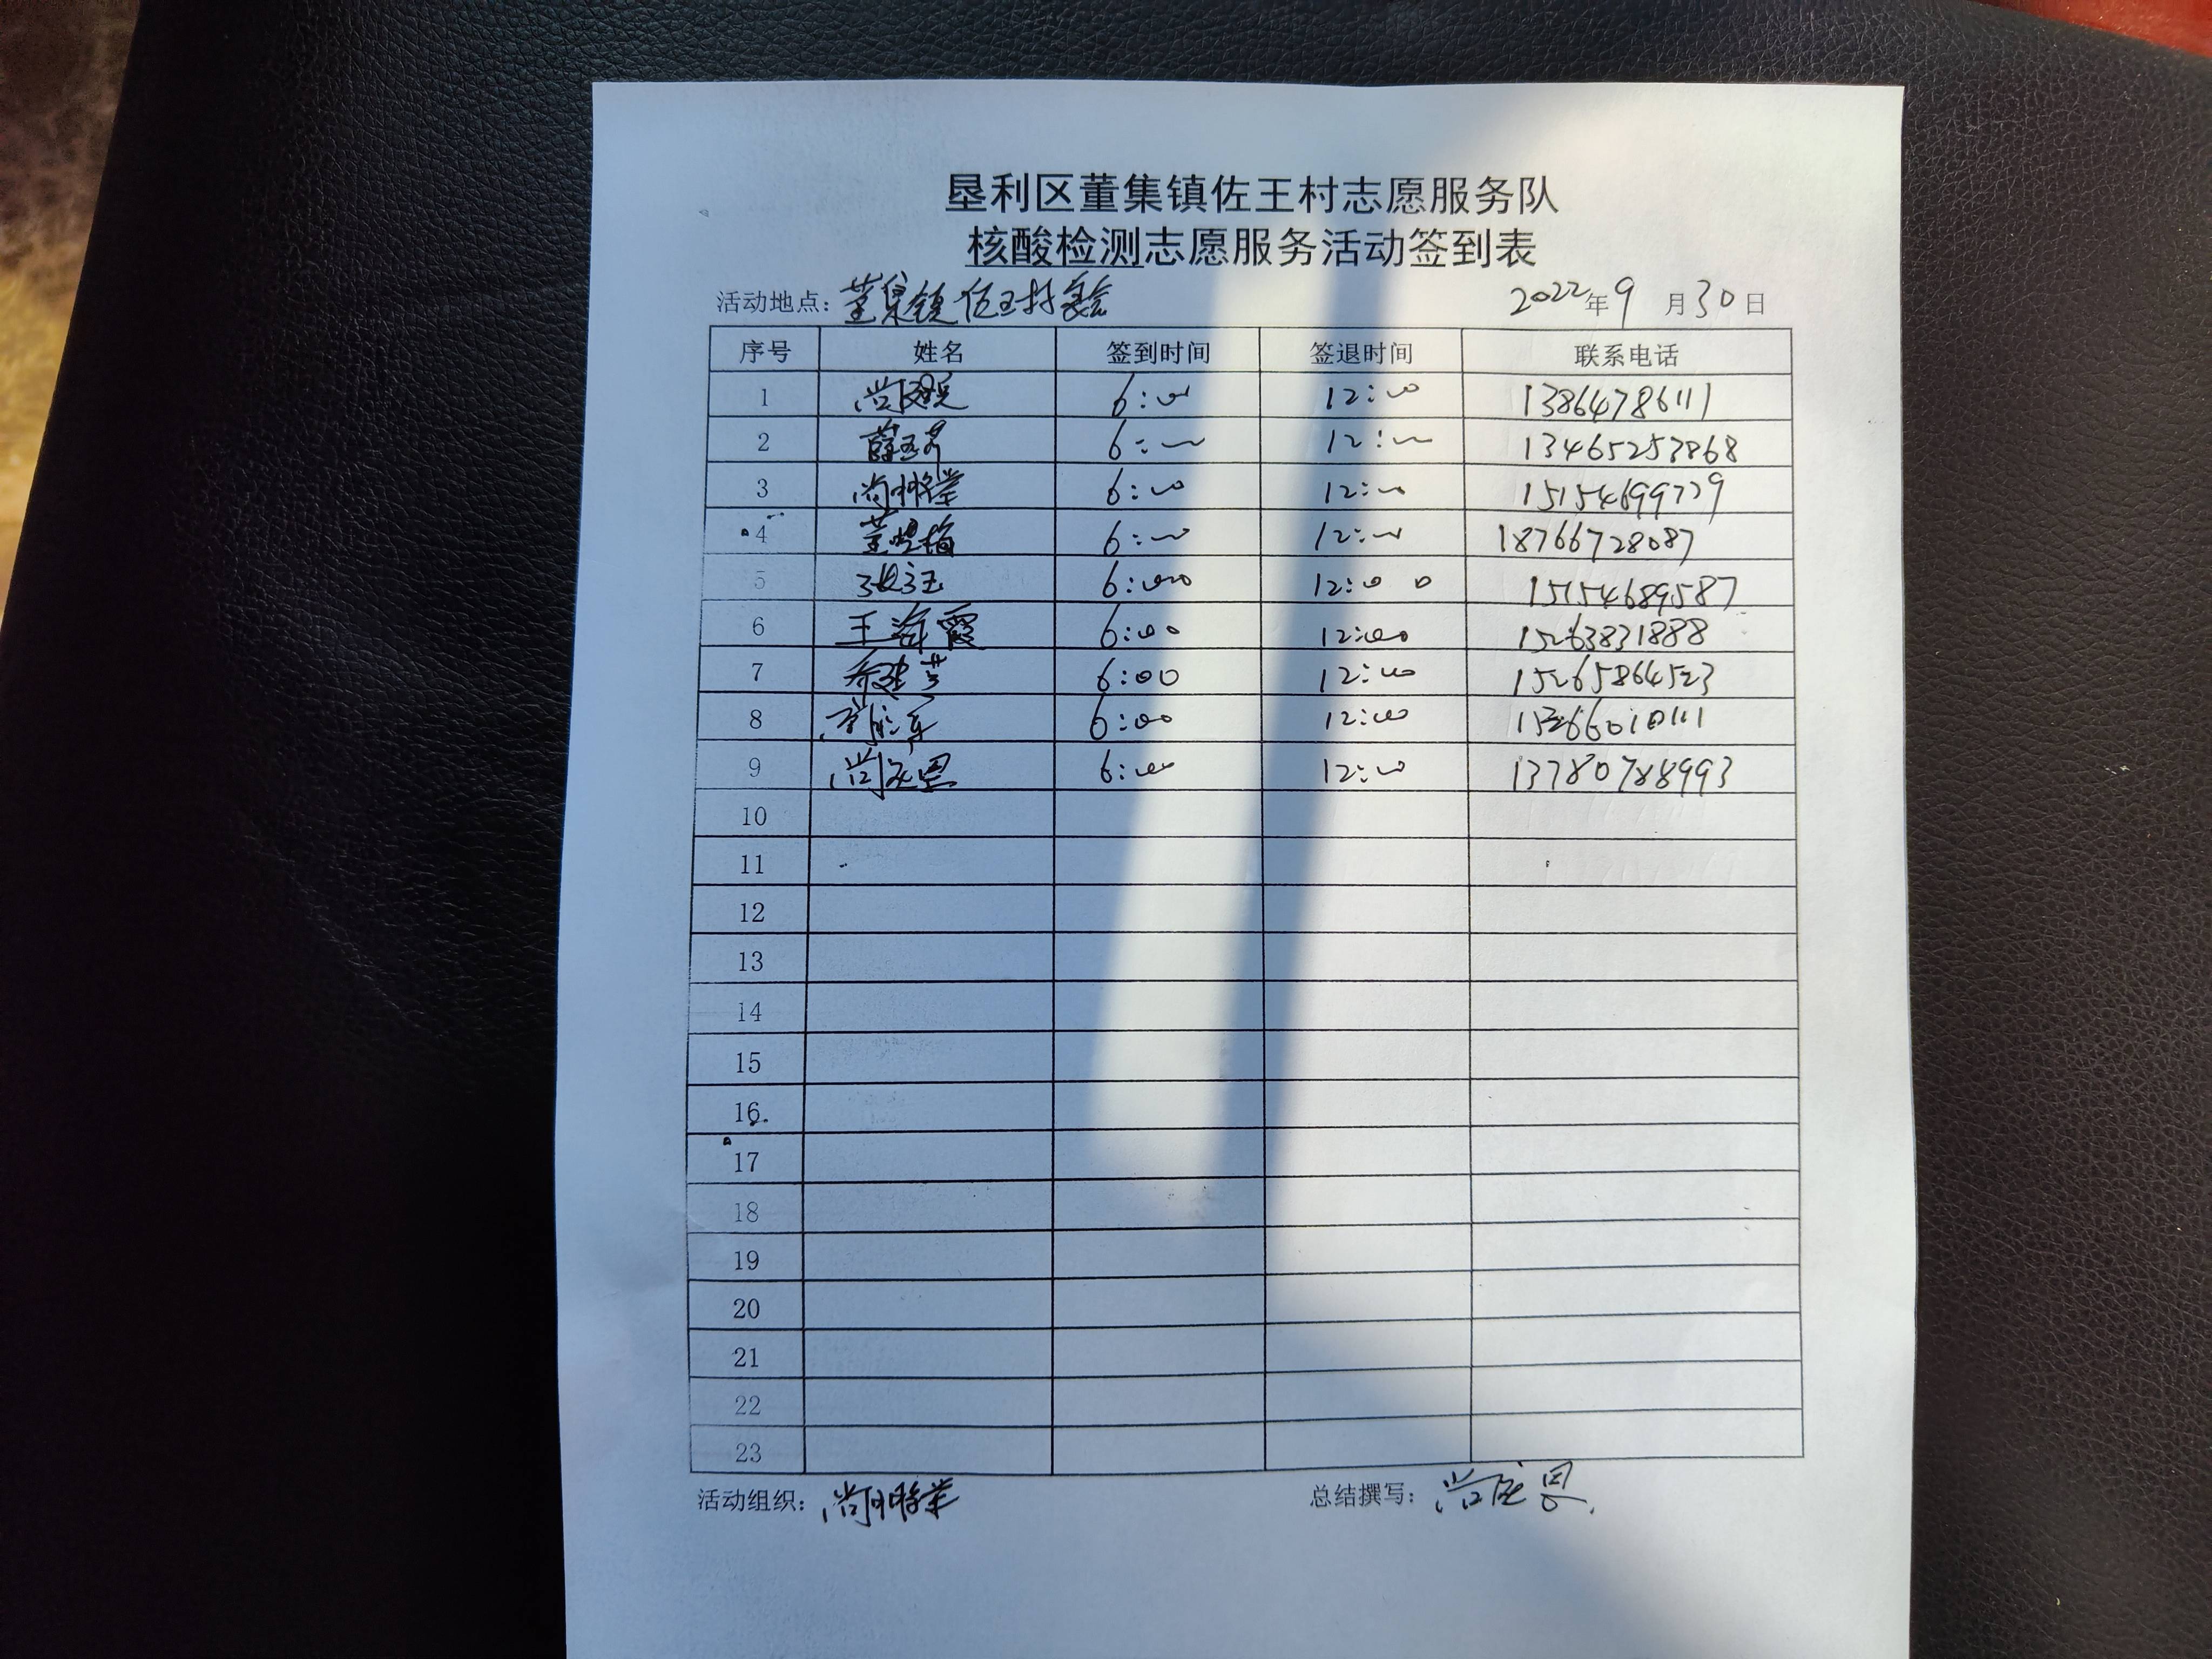 垦利区董集镇佐王村志愿服务队
核酸检测志愿服务活动签到表
活动地点：董集镇佐王村 2022年9月30日
序号 姓名 签到时间 签退时间 联系电话
1 6:00 12:00 13864786111
2 6:00 12:00 13465253868
3 6:00 12:00 15154699779
4 6:00 12:00 18766728087
5 6:000 12:00 0 15154689587
6 王海霞 6:00 12:00 15263831888
7 6:00 12:00 15265864523
8 6:00 12:00
9 6:00 12:00 13780788993
10
11
12
13
14
15
16
17
18
19
20
21
22
23
活动组织： 总结撰写：